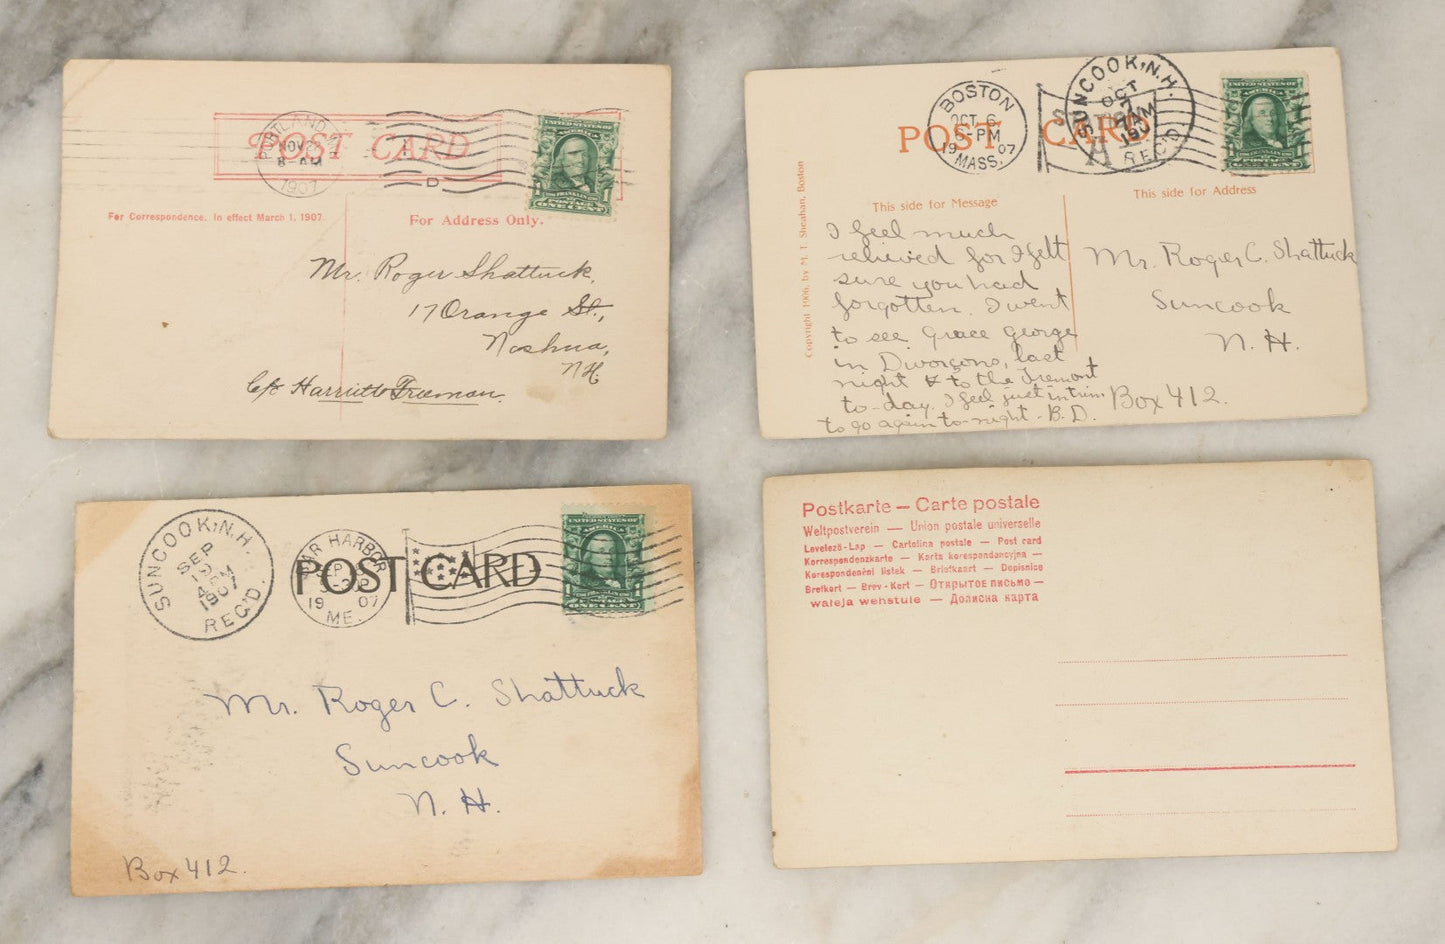 POST CARD
NOV
8-AM
1907
D
UNITED STATES OF AMERICA
POSTAGE
ONE CENT
For Correspondence. In effect March 1, 1907.
For Address Only.
Mr. Roger Shattuck,
17 Orange St.,
Nashua,
N.H.
c/o Harriette Freeman.
BOSTON
OCT 6
5-PM
19 07
MASS.
SUNCOOK, N.H.
OCT
7
AM
190
REC'D
POST CARD
UNITED STATES OF AMERICA
POSTAGE ONE CENT
This side for Message
This side for Address
Copyright 1906, by M. T. Sheahan, Boston
I feel much
relieved for I felt
sure you had
forgotten. I went
to see Grace George
in Divorçons, last
night & to the Tremont
to-day. I feel just in trim
to go again to-night - B.D.
Mr. Roger C. Shattuck
Suncook
N. H.
Box 412.
SUNCOOK, N.H.
SEP
1907
REC'D.
BAR HARBOR
19 07
ME.
POST CARD
UNITED STATES OF AMERICA
POSTAGE
ONE CENT
Mr. Roger C. Shattuck
Suncook
N. H.
Box 412.
Postkarte — Carte postale
Weltpostverein — Union postale universelle
Levelező-Lap — Cartolina postale — Post card
Korrespondenzkarte — Karta korespondencyjna —
Korespondenční lístek — Briefkaart — Dopisnice
Brefkort — Brev-Kort — Открытое письмо —
waleja wehstule — Дописна карта